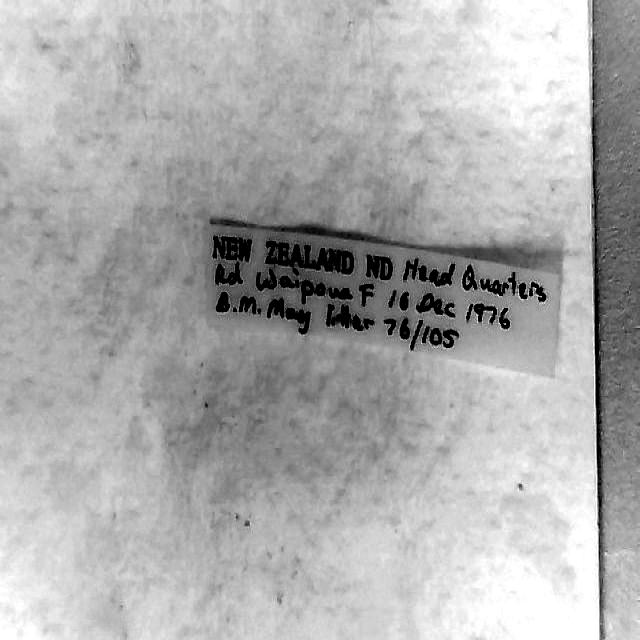 NEW ZEALAND ND Head Quarters
Rd Waipoua F 16 Dec 1976
B.M. May litter 76/105